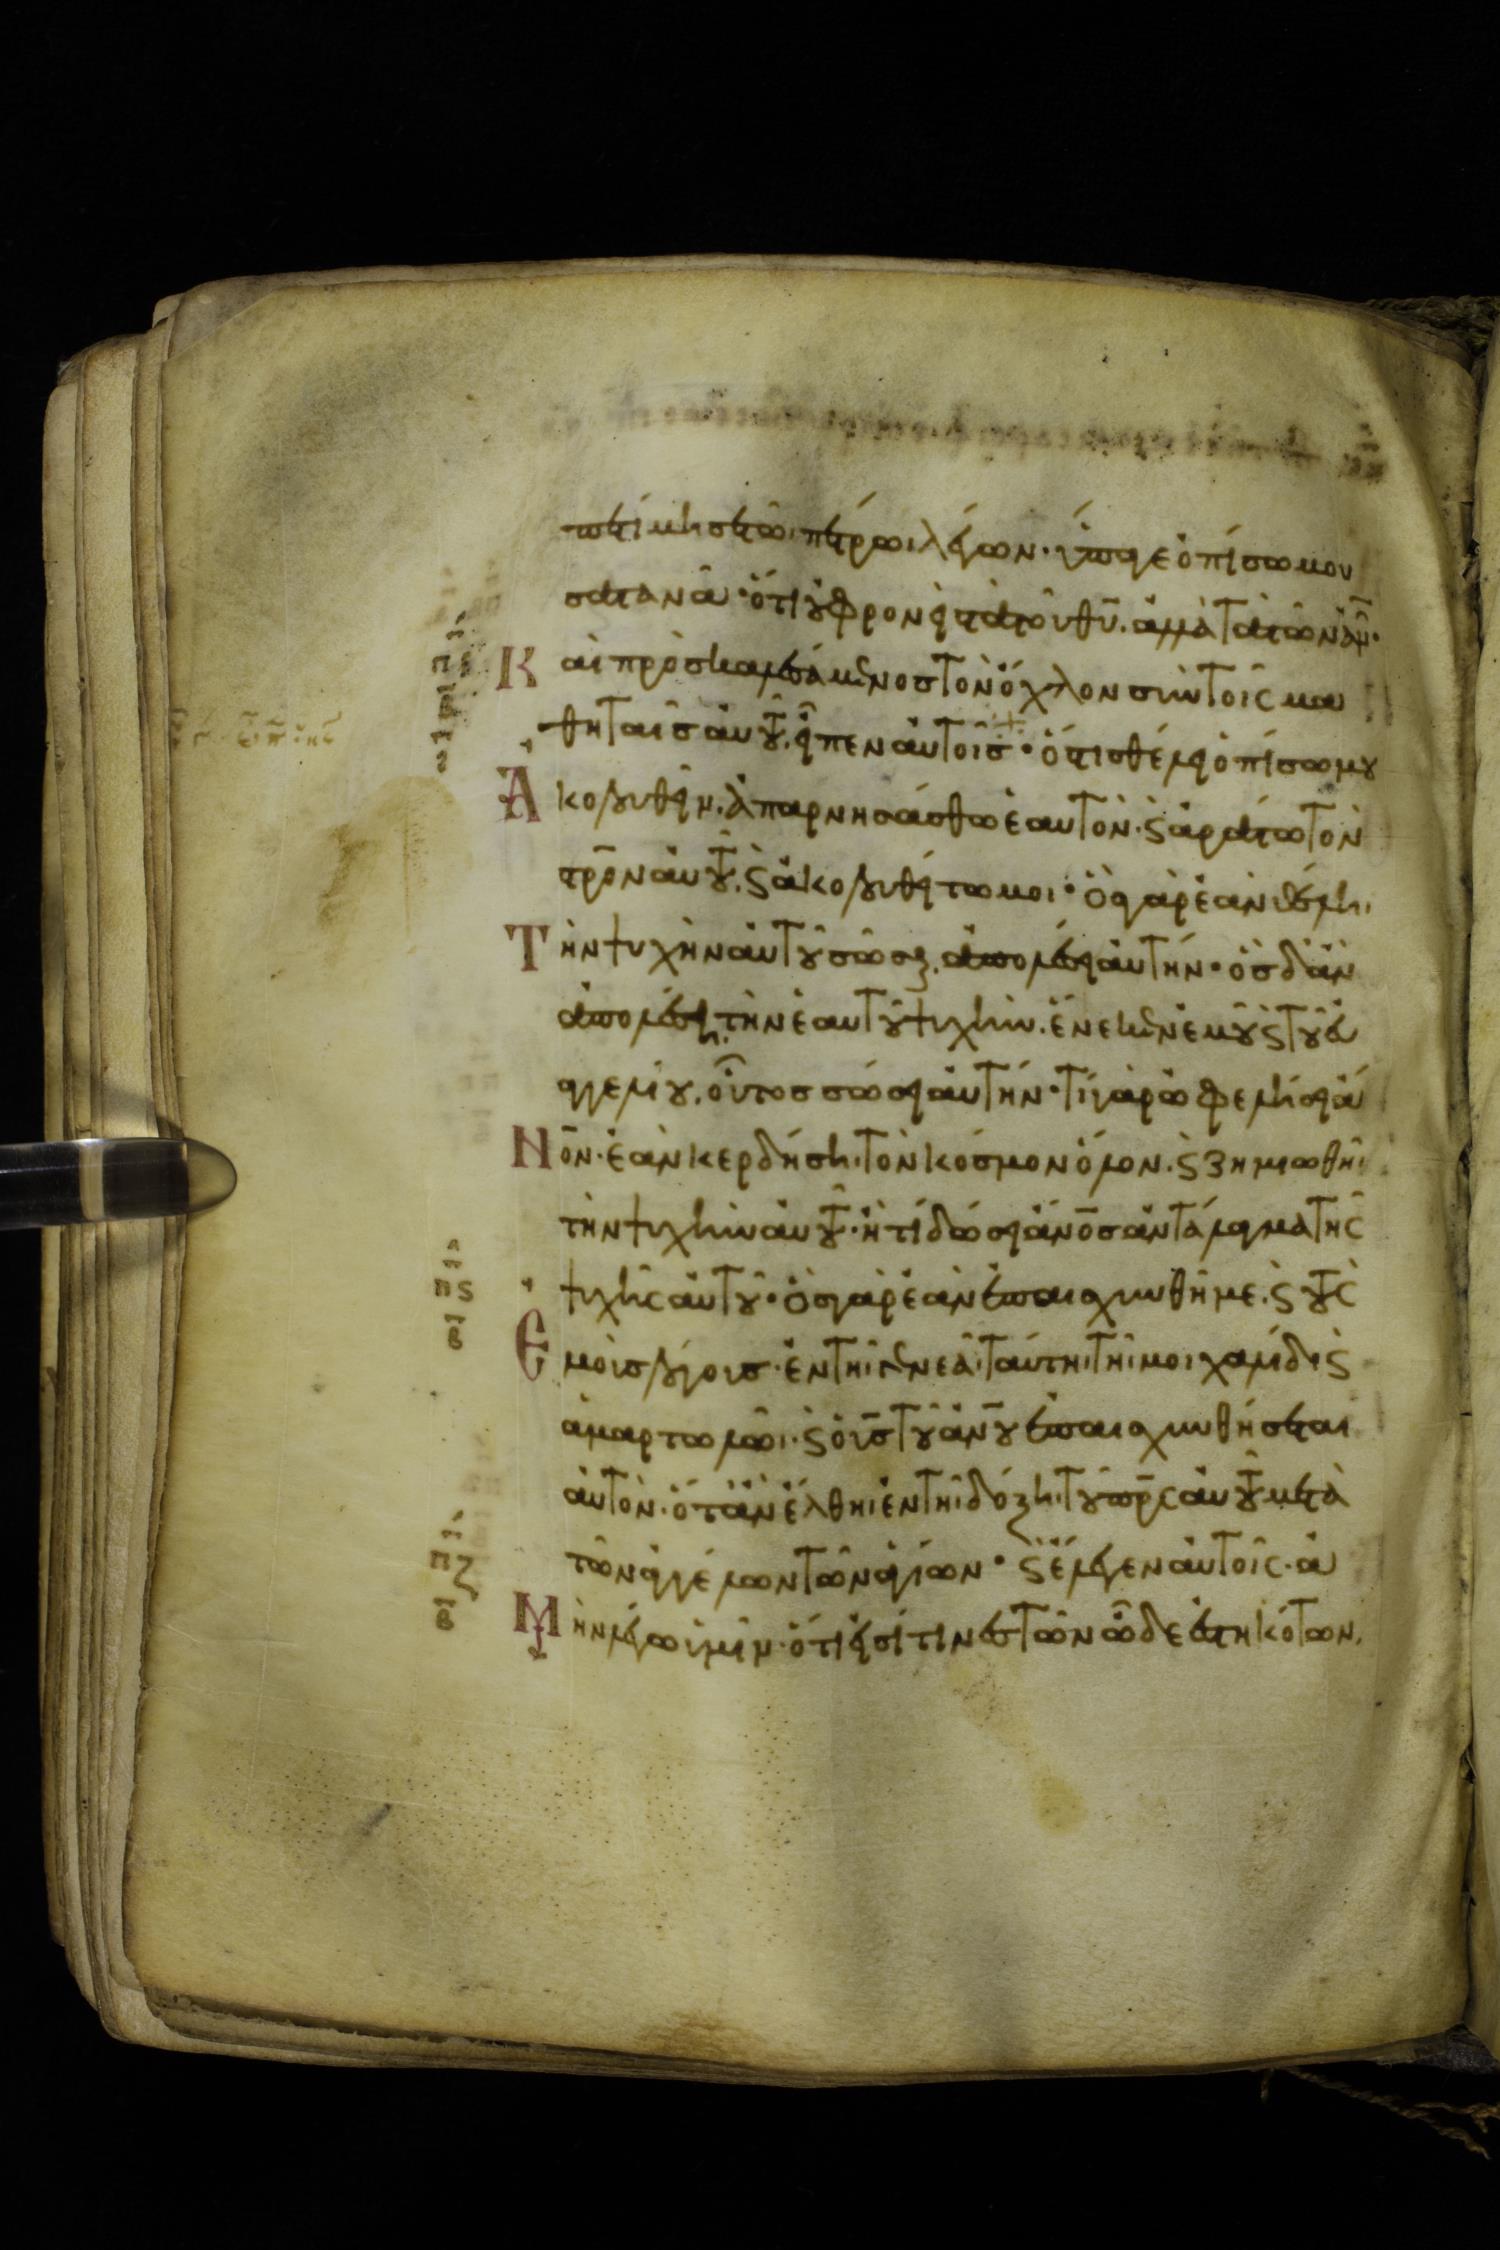 πετίμησε τῶι πέτρωι λέγων· ὕπαγε ὀπίσω μου
σατανᾶ· ὅτι οὐ φρονεῖς τὰ τοῦ θυ̅. ἀλλὰ τὰ τῶν ἀν̅ων·
Καὶ προσκαλεσάμενος τὸν ὄχλον σὺν τοῖς μα
θηταῖς αὐτοῦ, εἶπεν αὐτοῖς· ὅστις θέλει ὀπίσω μου
Ἀκολουθεῖν. ἀπαρνησάσθω ἑαυτὸν· καὶ ἀράτω τὸν
στρο̅ν αὐτοῦ, καὶ ἀκολουθείτω μοι· ὃς γὰρ ἐὰν θέληι
Τὴν ψυχὴν αὐτοῦ σῶσαι, ἀπολέσει αὐτήν· ὃς δ' ἂν
ἀπολέσηι τὴν ἑαυτοῦ ψυχὴν. ἕνεκεν ἐμοῦ καὶ τοῦ εὐ
αγγελίου, οὗτος σώσει αὐτήν· τί γὰρ ὠφελήσει ἄ
Νο̅ν· ἐὰν κερδήσηι τὸν κόσμον ὅλον. καὶ ζημιωθῆι
τὴν ψυχὴν αὐτοῦ· ἢ τί δώσει ἄνο̅ς ἀντάλλαγμα τῆς
ψυχῆς αὐτοῦ· ὃς γὰρ ἐὰν ἐπαισχυνθῆι με. καὶ τοὺς
Ἐμοὺς λόγους· ἐν τῆι γενεᾶι ταύτηι τῆι μοιχαλίδι καὶ
ἁμαρτωλῶι· καὶ ὁ υς̅ τοῦ ἀνου̅ ἐπαισχυνθήσεται
αὐτὸν· ὅταν ἔλθηι ἐν τῆι δόξηι τοῦ πρς̅ αὐτοῦ μετὰ
τῶν ἀγγέλων τῶν ἁγίων· καὶ ἔλεγεν αὐτοῖς· ἀ
Μὴν λέγω ὑμῖν· ὅτι εἰσί τινες τῶν ὧδε ἑστηκότων,
πς
β
πζ
β